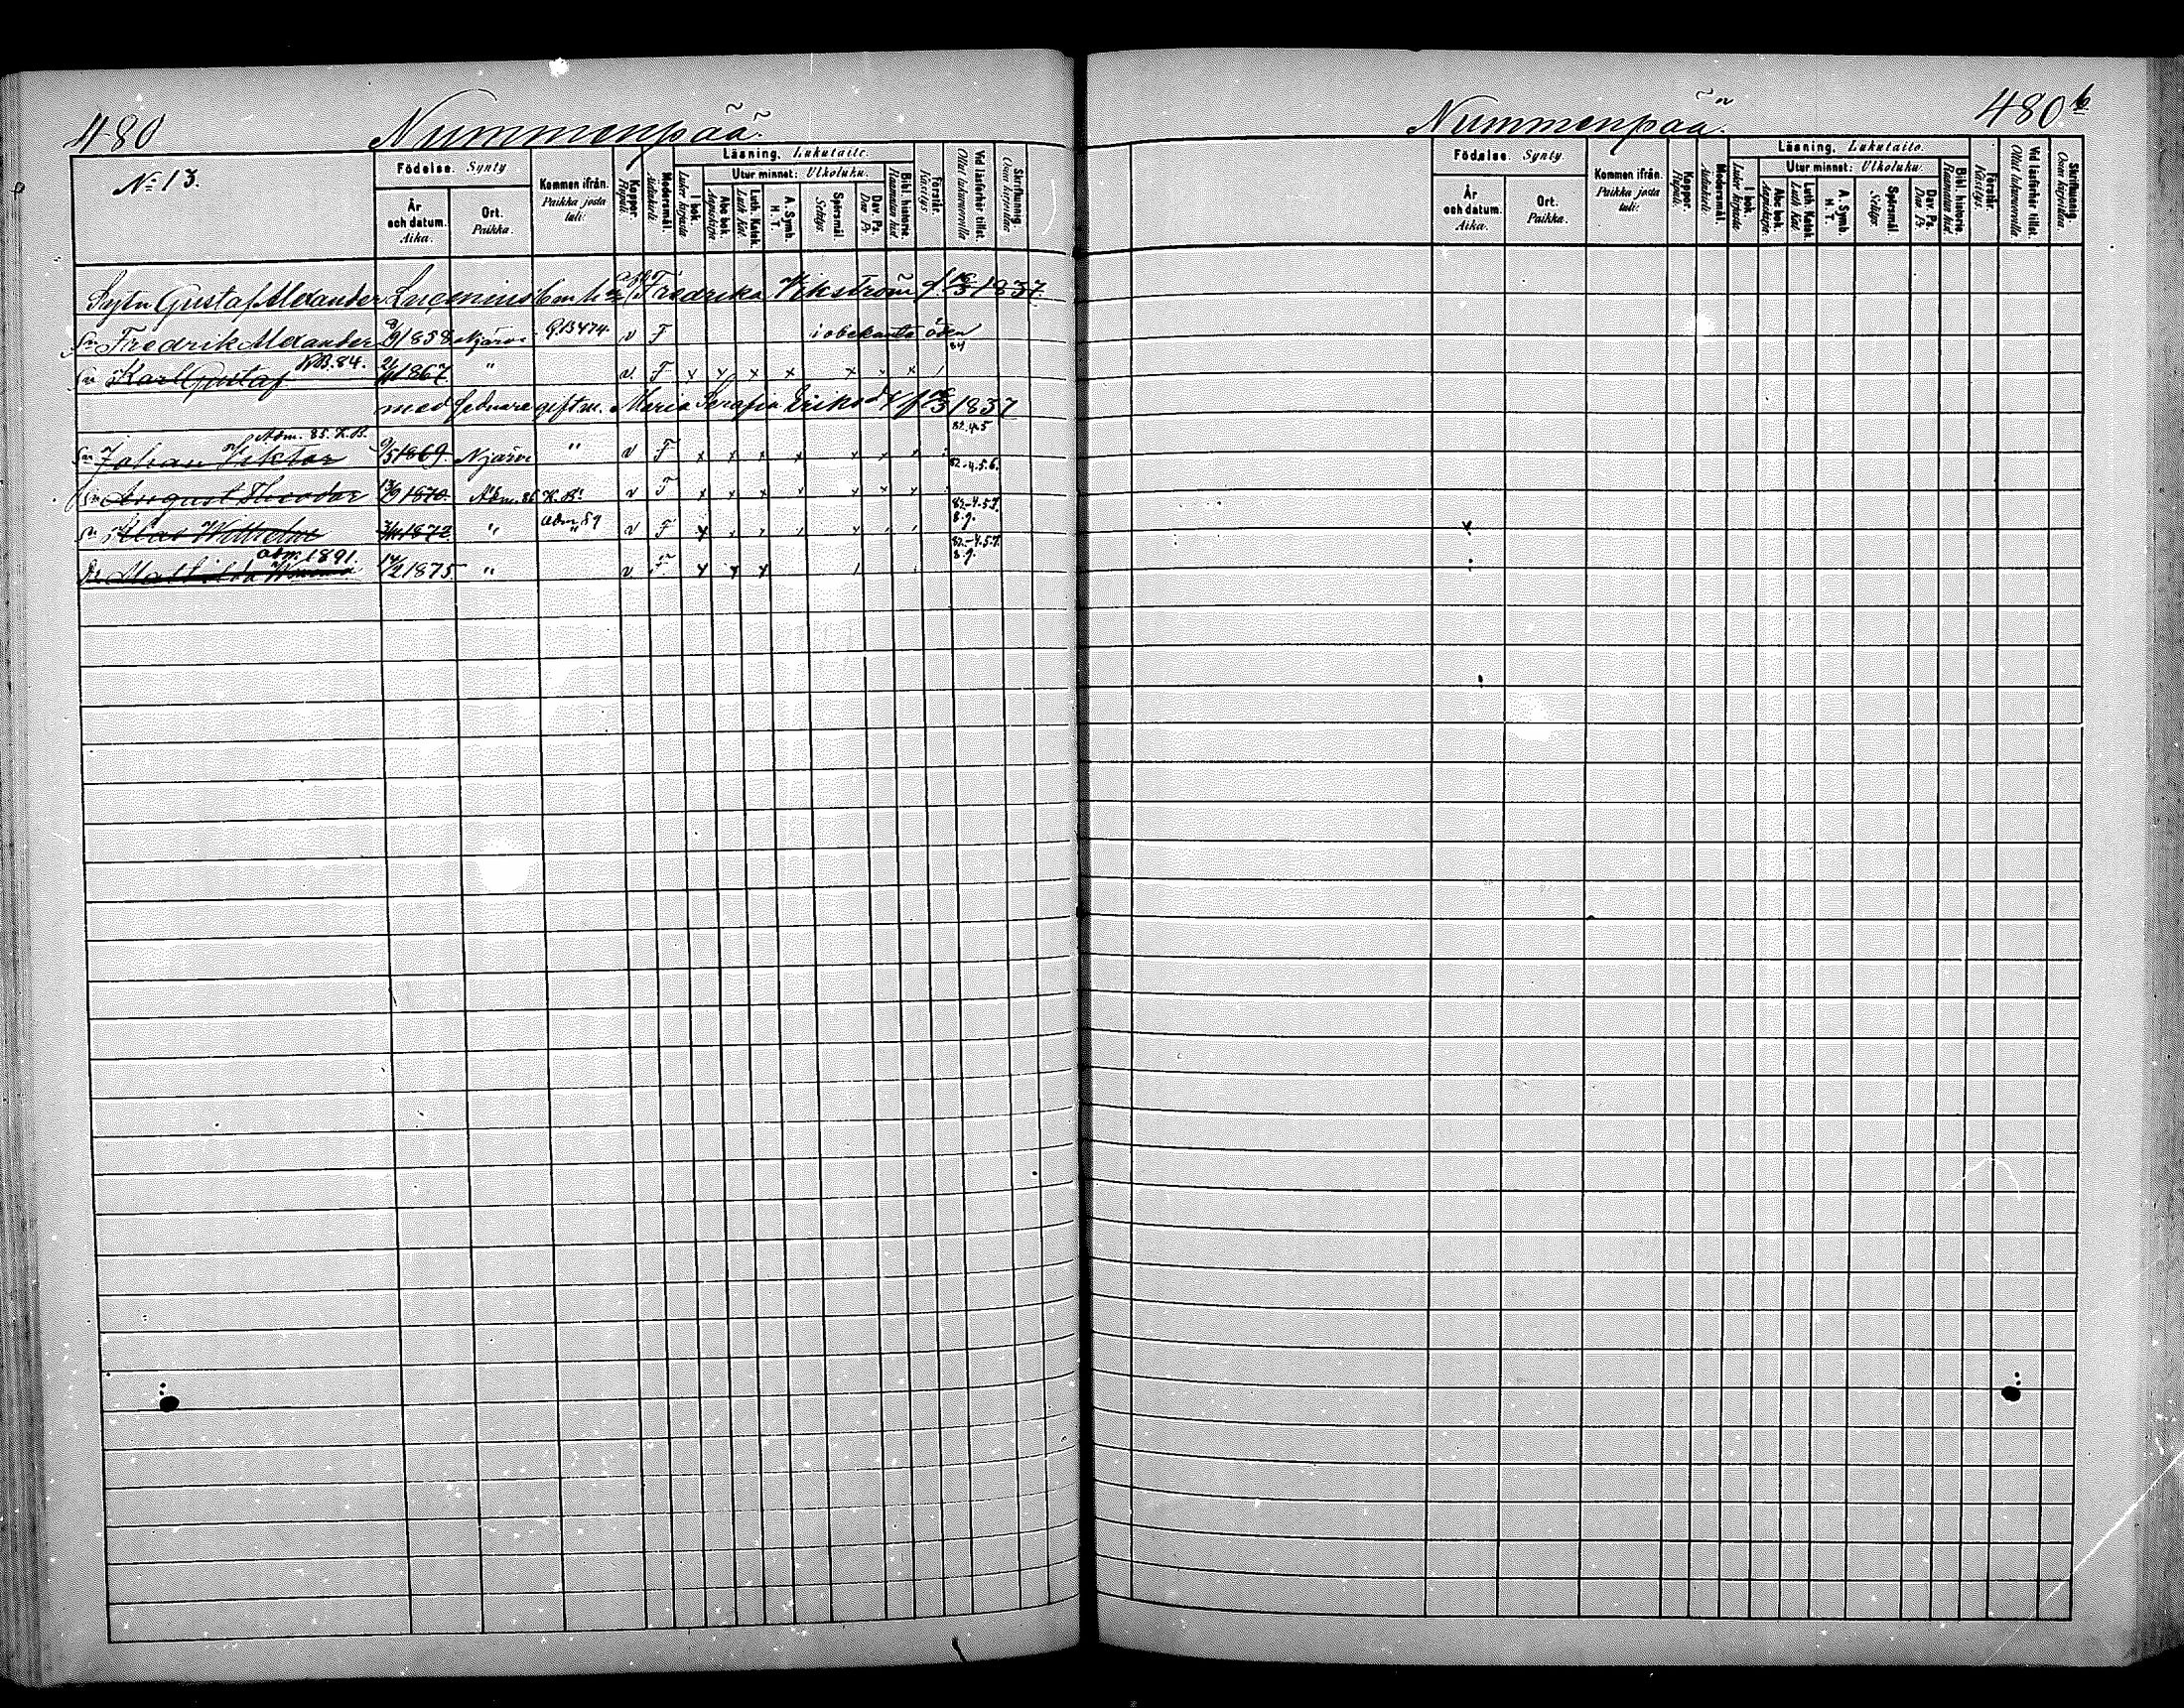 480
Nummenpää.
No 13.
Födelse. Synty
År och datum. Aika.
Ort. Paikka.
Kommen ifrån. Paikka josta tuli:
Koppor. Rupuli.
Modersmål. Äidinkieli.
Läsning. Lukutaito.
I bok. Luker kirjasta
Utur minnet: Ulkoluku.
Abc bok. Aapiskirja.
Luth. Katek. Luth Kat.
A. Symb. H. T.
Spörsmål. Selitys.
Dav. Ps. Dav. Ps.
Bibl. historie. Raamatun hist.
Förstår. Käsitys.
Vid läsförhör tillst. Ollut lukuvuorolla
Skrifkunnig. Osaa kirjoittaa
Gustaf Alexander Fredrika Vikström f. 1837.
Sn Fredrik Alexander 1858 Njärvi P.B 474 v F i obekanta öden
Sn Karl Gustaf K.B. 84. 1867 " v F x x x x x x x 84
med sednare gift m. Maria Serafia Eriksd f 1837
Adm. 85. K.B.
Sn Johan Viktor 1869 Njärvi " v F x x x x x x x 82.4.5
Sn August Theodor 1870 Adm. 86 K.B. v F x x x x x x x 82.-4.5.6.
Sn Klas Wilhelm 1872 " adm 89 " v F 82.-4.5.7. 8.9.
adm. 1891.
Dr Mathilda 17/2 1875 " v F x x x 82.-4.5.7. 8.9.
Nummenpää.
480 b
Födelse. Synty.
År och datum. Aika.
Ort. Paikka.
Kommen ifrån. Paikka josta tuli:
Koppor. Rupuli.
Modersmål. Äidinkieli.
Läsning. Lukutaito.
I bok. Luker kirjasta
Utur minnet: Ulkoluku.
Abc bok. Aapiskirja.
Luth. Katek. Luth Kat
A. Symb. H. T.
Spörsmål. Selitys.
Dav. Ps. Dav. Ps.
Bibl. historie. Raamatun hist.
Förstår. Käsitys.
Vid läsförhör tillst. Ollut lukuvuorolla
Skrifkunnig. Osaa kirjoittaa.